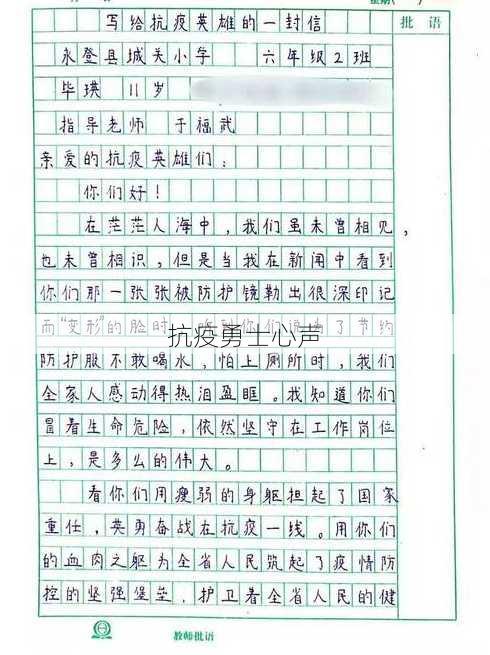 批语
写给抗疫英雄的一封信
永登县城关小学 六年级2班
毕琪 11岁
指导老师 于福武
亲爱的抗疫英雄们：
你们好！
在茫茫人海中，我们虽未曾相见，
也未曾相识，但是当我在新闻中看到
你们那一张张被防护镜勒出很深印记
而“变形”的脸时，听到你们说为了节约
抗疫勇士心声
防护服不敢喝水，怕上厕所时，我们
全家人感动得热泪盈眶。我知道你们
冒着生命危险，依然坚守在工作岗位
上，是多么的伟大。
看你们用瘦弱的身躯担起了国家
重任，英勇奋战在抗疫一线。用你们
的血肉之躯为全省人民筑起了疫情防
控的坚强堡垒，护卫着全省人民的健
教师批语